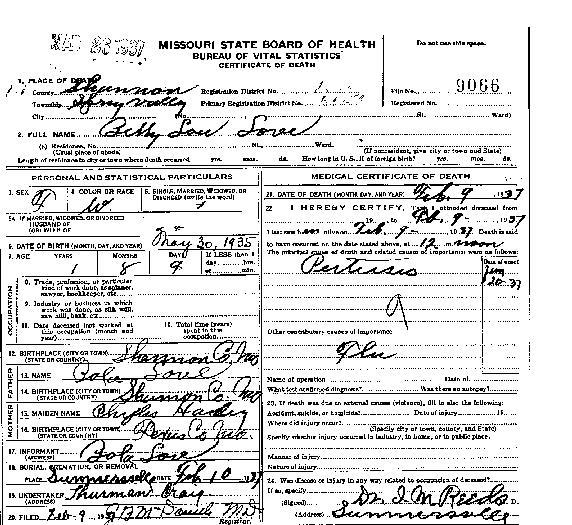 MISSOURI STATE BOARD OF HEALTH
BUREAU OF VITAL STATISTICS
CERTIFICATE OF DEATH
Do not use this space.
1. PLACE OF DEATH
County Shannon Registration District No.
Township Spring Valley Primary Registration District No.
File No. 9066
Registered No.
City St. Ward)
2. FULL NAME Betty Lou Love
(a) Residence, No. St. Ward.
(Usual place of abode) (If nonresident, give city or town and State)
Length of residence in city or town where death occurred yrs. mos. ds. How long in U. S., if of foreign birth? yrs. mos. ds.
PERSONAL AND STATISTICAL PARTICULARS
3. SEX F
4. COLOR OR RACE W
5. SINGLE, MARRIED, WIDOWED, OR DIVORCED (write the word)
5A. IF MARRIED, WIDOWED, OR DIVORCED
HUSBAND OF
(OR) WIFE OF
6. DATE OF BIRTH (MONTH, DAY, AND YEAR) May 30, 1935
7. AGE YEARS 1 MONTHS 8 DAYS 9 If LESS than 1 day, hrs. or min.
OCCUPATION
8. Trade, profession, or particular kind of work done, as spinner, sawyer, bookkeeper, etc.
9. Industry or business in which work was done, as silk mill, saw mill, bank, etc.
10. Date deceased last worked at this occupation (month and year)
11. Total time (years) spent in this occupation
12. BIRTHPLACE (CITY OR TOWN) Shannon Co, Mo
(STATE OR COUNTRY)
FATHER
13. NAME Love
14. BIRTHPLACE (CITY OR TOWN) Shannon Co, Mo
(STATE OR COUNTRY)
MOTHER
15. MAIDEN NAME Phyllis
16. BIRTHPLACE (CITY OR TOWN) Texas Co Mo.
(STATE OR COUNTRY)
17. INFORMANT Love
(ADDRESS)
18. BURIAL, CREMATION, OR REMOVAL
PLACE Summersville DATE Feb 10 1937
19. UNDERTAKER Thurman
(ADDRESS)
20. FILED Feb-9 19 McDaniel M.D.
Registrar
MEDICAL CERTIFICATE OF DEATH
21. DATE OF DEATH (MONTH, DAY, AND YEAR) Feb. 9 1937
22. I HEREBY CERTIFY, That I attended deceased from
19 to Feb. 9 - 1937
I last saw alive on Feb. 9 - 1937 Death is said
to have occurred on the date stated above, at 12 noon
The principal cause of death and related causes of importance were as follows:
Date of onset
Pertussis Jan 20-37
Other contributory causes of importance:
Flu
Name of operation Date of
What test confirmed diagnosis? Was there an autopsy?
23. If death was due to external causes (violence), fill in also the following:
Accident, suicide, or homicide? Date of injury 19
Where did injury occur?
(Specify city or town, county, and State)
Specify whether injury occurred in industry, in home, or in public place.
Manner of injury
Nature of injury
24. Was disease or injury in any way related to occupation of deceased?
If so, specify
(Signed) Dr. J M Reeds D.
(Address) Summersville